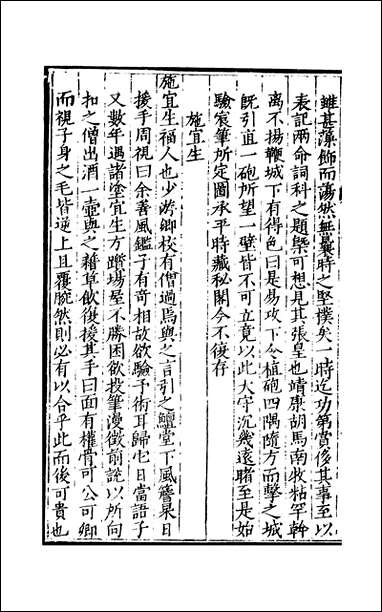 雖甚藻飾而蕩然無曩時之堅樸矣一時迄功第賞侈其事至以
表記兩命詞科之題槩可想見其張皇也靖康胡馬南牧粘罕幹
离不揚鞭城下有得色曰是易攻下令植砲四隅隨方而擊之城
旣引直一砲所望一壁皆不可立竟以此大宇沉幾遠睹至是始
驗宸筆所定圖承平時藏秘閣今不復存
施宜生
施宜生福人也少游鄉校有僧過焉與之言引之鱣堂下風簷杲日
援手周視曰余善風鑑子有奇相故欲驗予術耳歸它日當語子
又數年遇諸塗宜生方躓場屋不勝困欲投筆漫徵前說以所向
扣之僧出酒一壺與之藉草飲復援其手曰面有權骨可公可卿
而視子身之毛皆逆上且覆腕然則必有以合乎此而後可貴也